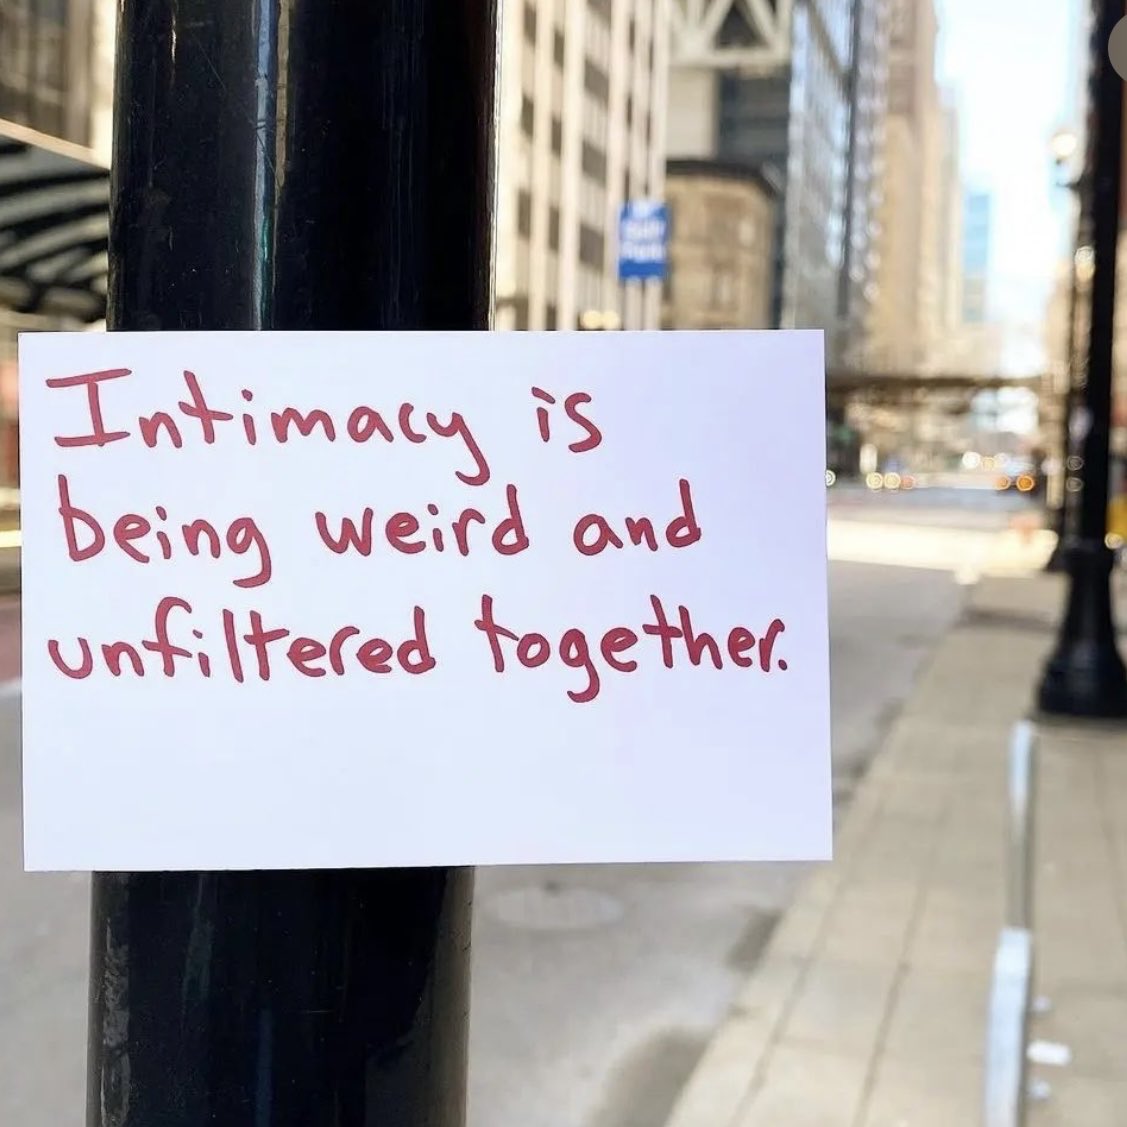 Intimacy is
being weird and
unfiltered together.